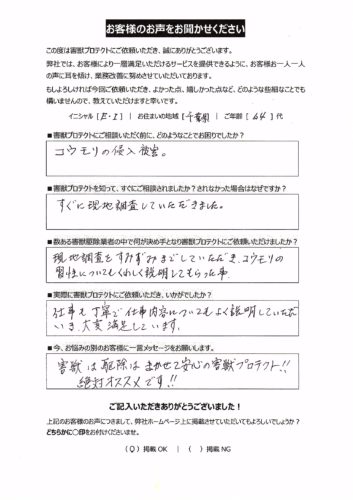 お客様のお声をお聞かせください
この度は害獣プロテクトにご依頼いただき、誠にありがとうございます。
弊社では、お客様により一層満足いただけるサービスを提供できるように、お客様お一人一人
の声に耳を傾け、業務改善に努めさせていただいております。
もしよろしければ今回ご依頼いただき、よかった点、嬉しかった点など、どのような些細なことでも
構いませんので、教えていただけますと幸いです。
イニシャル [ E・I ] | お住まいの地域 [ 千葉県 ] | ご年齢 [ 64 ] 代
■害獣プロテクトにご相談いただく前に、どのようなことでお困りでしたか？
コウモリの侵入被害。
■害獣プロテクトを知って、すぐにご相談されましたか？されなかった場合はなぜですか？
すぐに現地調査していただきました。
■数ある害獣駆除業者の中で何が決め手となり害獣プロテクトにご依頼いただけましたか？
現地調査をすみずみまでしていただき、コウモリの
習性についてもくわしく説明してもらった事
■実際に害獣プロテクトにご依頼いただき、いかがでしたか？
仕事も丁寧で仕事内容についてもよく説明していただ
いき、大変満足しています。
■今、お悩みの別のお客様に一言メッセージをお願いします。
害獣は駆除はまかせて安心の害獣プロテクト!!
絶対オススメです!!
ご記入いただきありがとうございました！
上記のお客様のお声につきまして、弊社ホームページ上に掲載させていただいてもよろしいでしょうか？
どちらかに〇印をお付けくださいませ。
( 〇 ) 掲載 OK | ( ) 掲載 NG